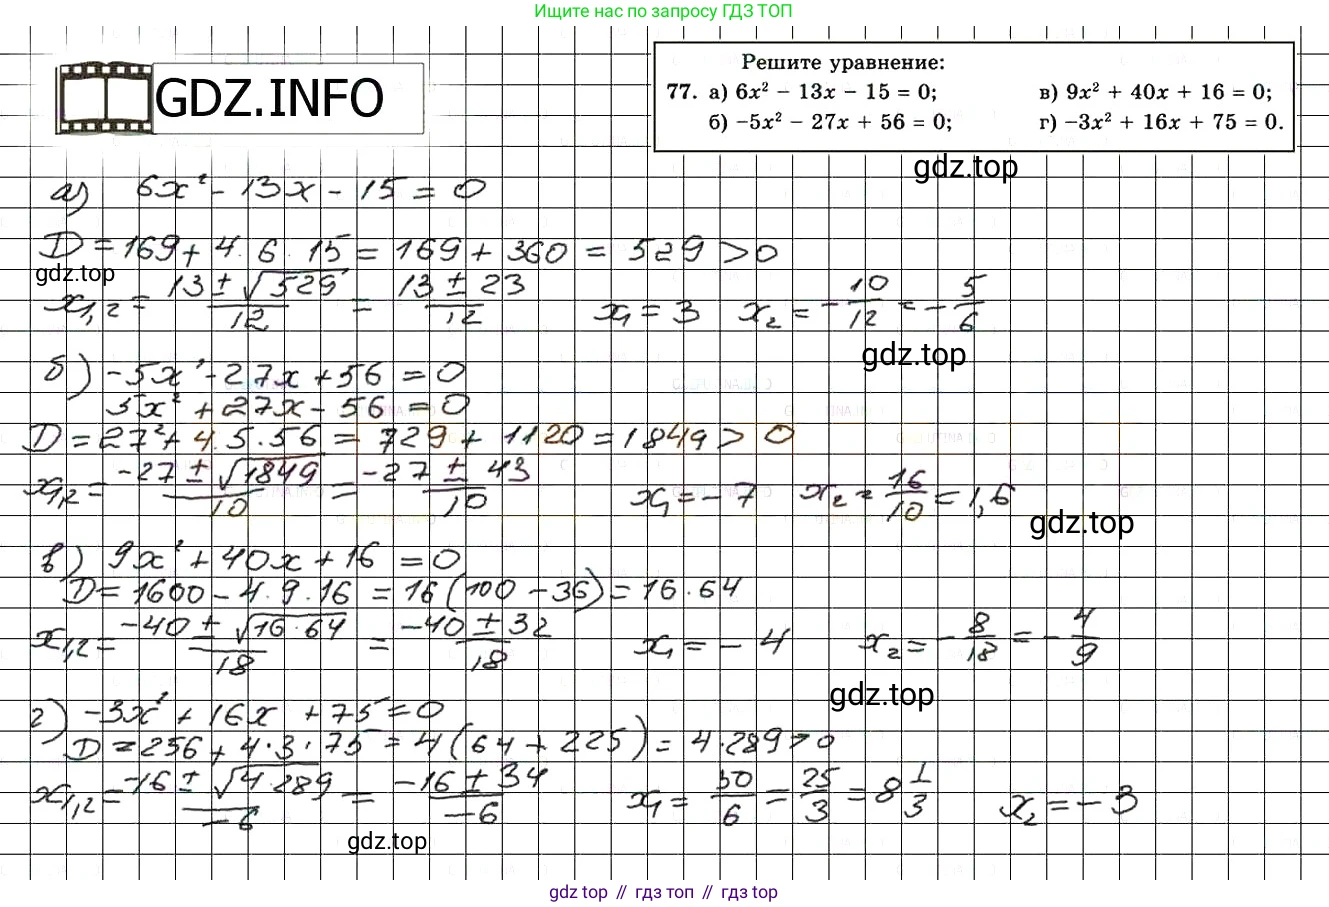 Ищите нас по запросу ГДЗ ТОП
GDZ.INFO
Решите уравнение:
77. а) 6x² − 13x − 15 = 0; в) 9x² + 40x + 16 = 0;
б) −5x² − 27x + 56 = 0; г) −3x² + 16x + 75 = 0.
gdz.top
а) 6x² − 13x − 15 = 0
D = 169 + 4·6·15 = 169 + 360 = 529 > 0
gdz.top
x₁,₂ = (13 ± √529)/12 = (13 ± 23)/12 x₁ = 3 x₂ = −10/12 = −5/6
gdz.top
б) −5x² − 27x + 56 = 0
5x² + 27x − 56 = 0
D = 27² + 4·5·56 = 729 + 1120 = 1849 > 0
x₁,₂ = (−27 ± √1849)/10 = (−27 ± 43)/10 x₁ = −7 x₂ = 16/10 = 1,6
gdz.top
в) 9x² + 40x + 16 = 0
D = 1600 − 4·9·16 = 16(100 − 36) = 16·64
x₁,₂ = (−40 ± √16·64)/18 = (−40 ± 32)/18 x₁ = −4 x₂ = −8/18 = −4/9
gdz.top
г) −3x² + 16x + 75 = 0
D = 256 + 4·3·75 = 4(64 + 225) = 4·289 > 0
x₁,₂ = (−16 ± √4·289)/−6 = (−16 ± 34)/−6 x₁ = 50/6 = 25/3 = 8 1/3 x₂ = −3
gdz.top
gdz top // гдз топ // gdz top